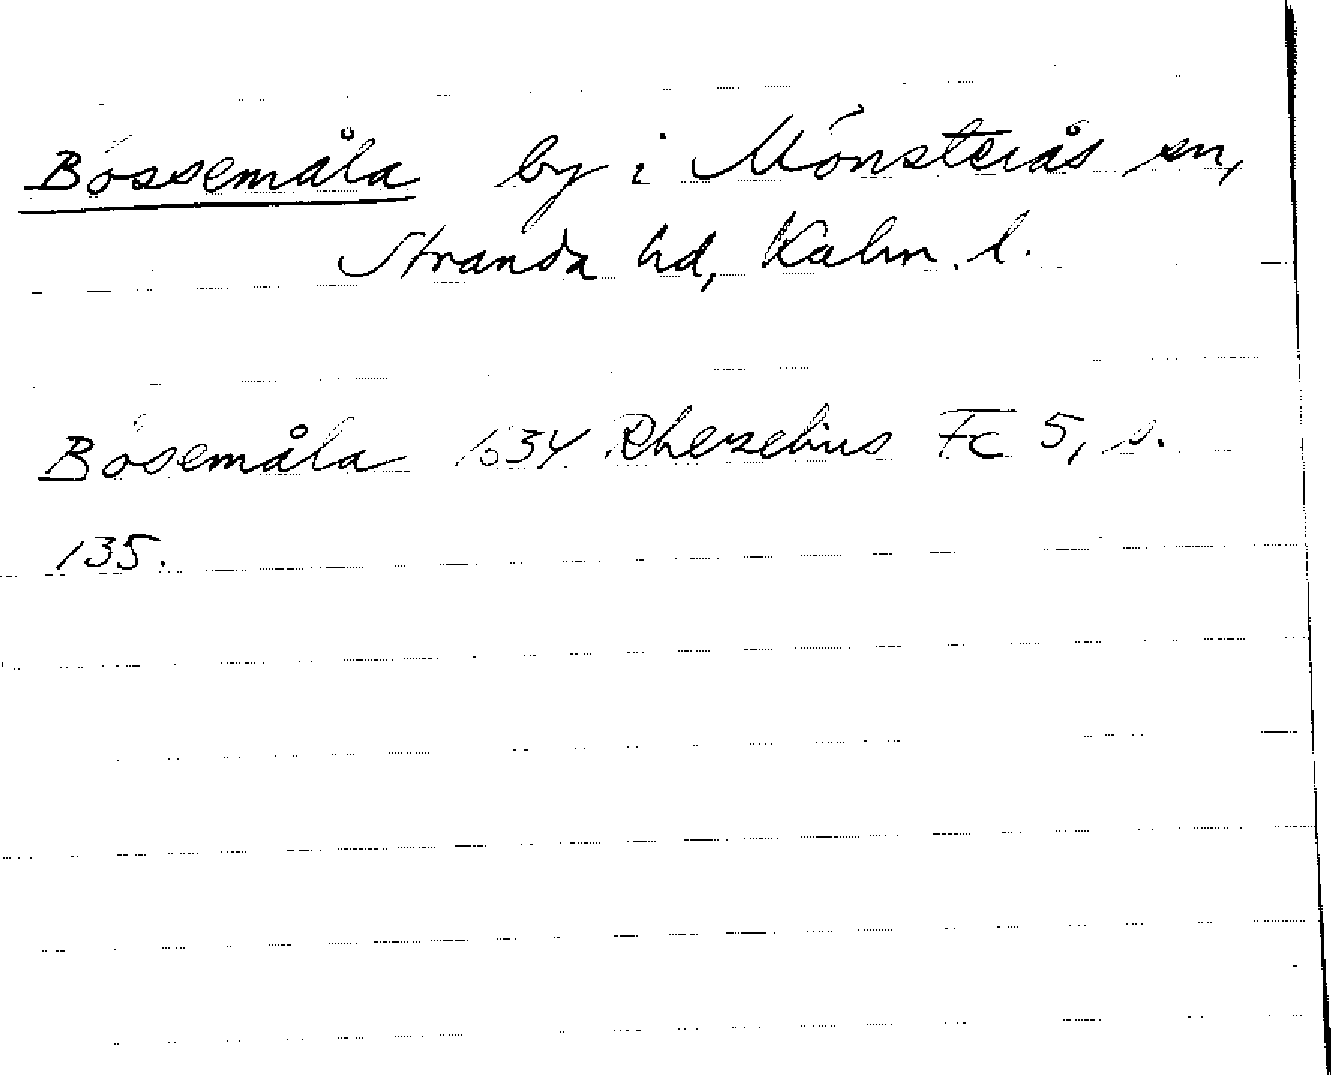 Bössemåla by i Mönsterås sn,
Stranda hd, Kalm. l.
Bösemåla 1634 Rhezelius Fc 5, s.
135.